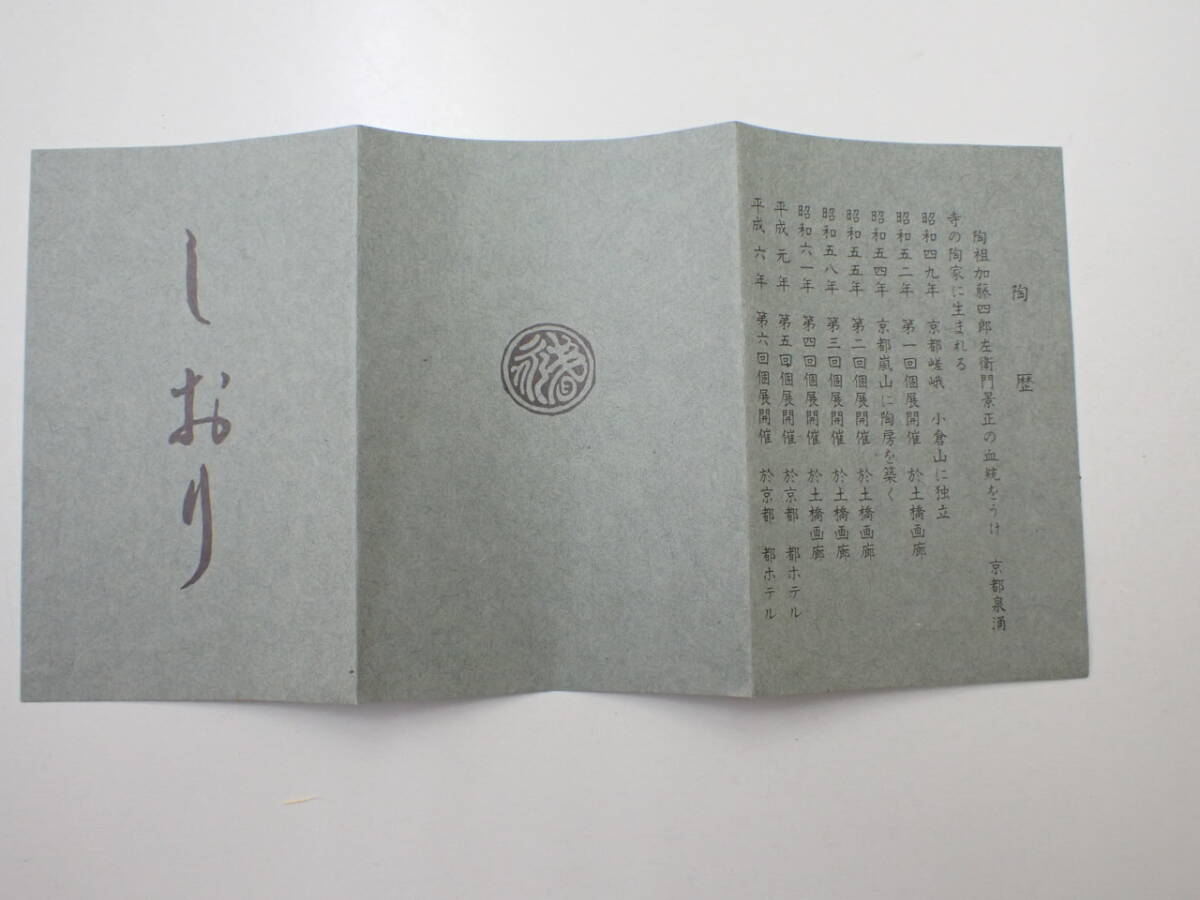 陶歴
陶祖加藤四郎左衛門景正の血統をうけ 京都泉涌
寺の陶家に生まれる
昭和四九年 京都嵯峨 小倉山に独立
昭和五二年 第一回個展開催 於土橋画廊
昭和五四年 京都嵐山に陶房を築く
昭和五五年 第二回個展開催 於土橋画廊
昭和五八年 第三回個展開催 於土橋画廊
昭和六一年 第四回個展開催 於土橋画廊
平成元年 第五回個展開催 於京都 都ホテル
平成六年 第六回個展開催 於京都 都ホテル
しおり